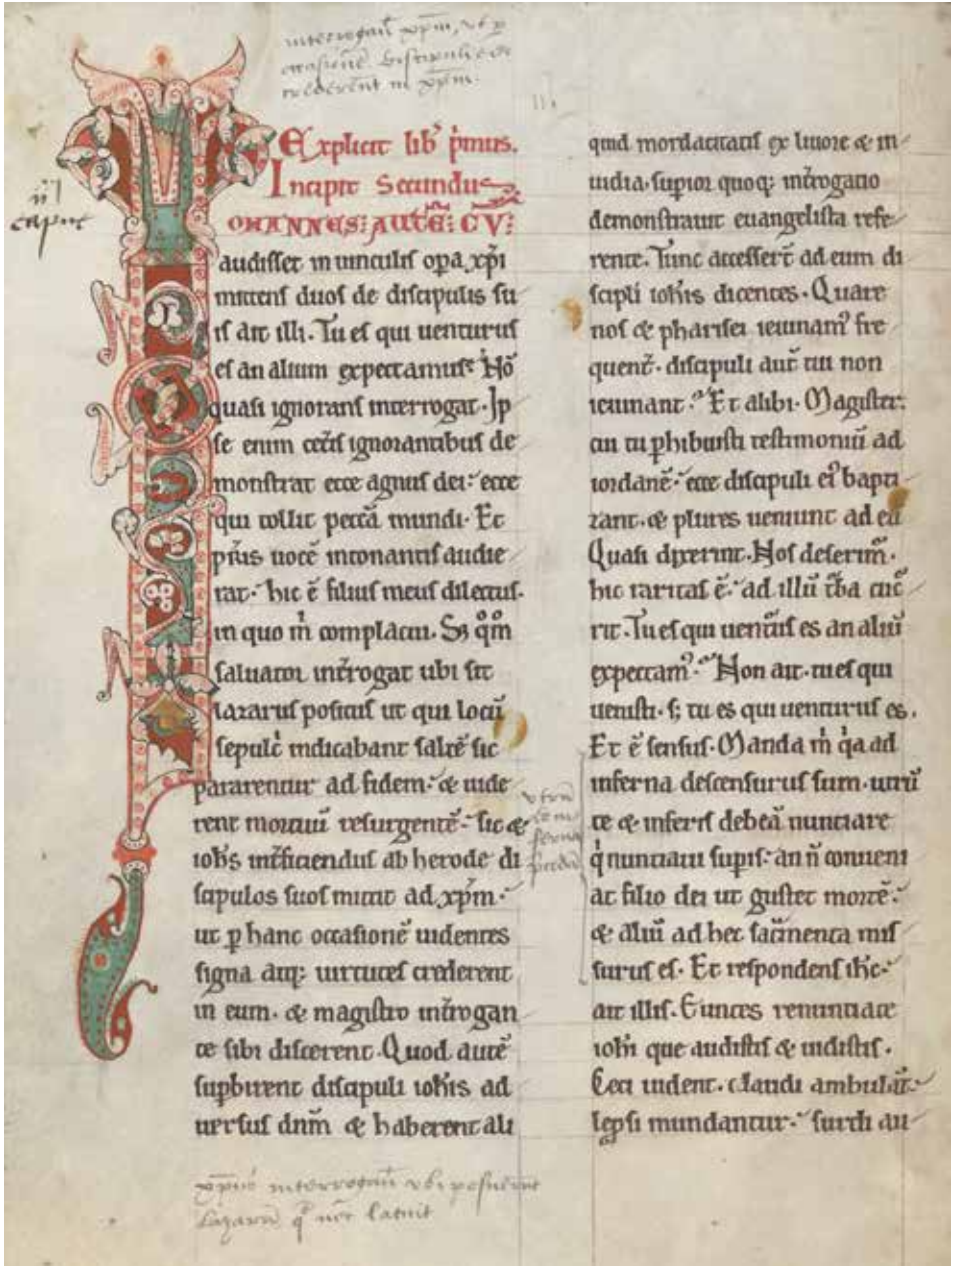 interrogauit xp̄m, vt p
occasionē discipuli ei
crederent in xp̄m.
caput
Explicit lib' p̄mus.
Incipit Secundus
OHANNES: AUTĒ: CV̄:
audisset in uinculis op̄a xp̄i
mittens duos de discipulis su
is ait illi. Tu es qui uenturus
es an alium expectamus? Nō
quasi ignorans interrogat. Ip
se enim cet̄is ignorantibus de
monstrat ecce agnus dei: ecce
qui tollit peccā mundi. Et
p̄ris uocē intonantis audie
rat. hic ē filius meus dilectus.
in quo m̄ complacui. S; q̊m̊
saluator int̄rogat ubi sit
lazarus positus ut qui locū
sepulc̄ indicabant saltē sic
pararentur ad fidem. & uide
rent mortuū resurgentē. sic &
ioh̄s int̄ficiendus ab herode di
scipulos suos mittit ad xp̄m.
ut p hanc occasionē uidentes
signa atq; uirtutes crederent
in eum. & magistro int̄rogan
te sibi discerent. Quod autē
sup̄birent discipuli ioh̄is ad
uersus dn̄m & haberent ali
xp̄us interrogauit vbi posuerunt
Lazarū q̄ nec latuit
quid mordacitatis ex liuore & in
uidia. sup̄ior quoq; int̄rogatio
demonstrauit euangelista refe
rente. Tunc accesser̄t ad eum di
scipli ioh̄is dicentes. Quare
nos & pharisei ieiunam' fre
quent̄. discipuli aut̄ tui non
ieiunant. Et alibi. Magister.
cui tu phibuisti testimoniū ad
iordanē. ecce discipuli ei' bapti
zant. & plures ueniunt ad eū
Quasi dixerint. Nos deserim̄.
hic raritas ē. ad illū t̄ba cuc̄
rit. Tu es qui uent̄us es an aliū
expectam'. Non ait. tu es qui
uenisti. s; tu es qui uenturus es.
Et ē sensus. Manda m̄ q̇a ad
inferna descensurus sum. utrū
te & inferis debeā nunciare
q̇ nunciaui sup̄is. an n̄ conueni
at filio dei ut gustet mortē.
& aliū ad hec sac̄menta mis
surus es. Et respondens ih̄c.
ait illis. Euntes renunciate
ioh̄i que audistis & uidistis.
Ceci uident. claudi ambulāt.
lep̄si mundantur. surdi au